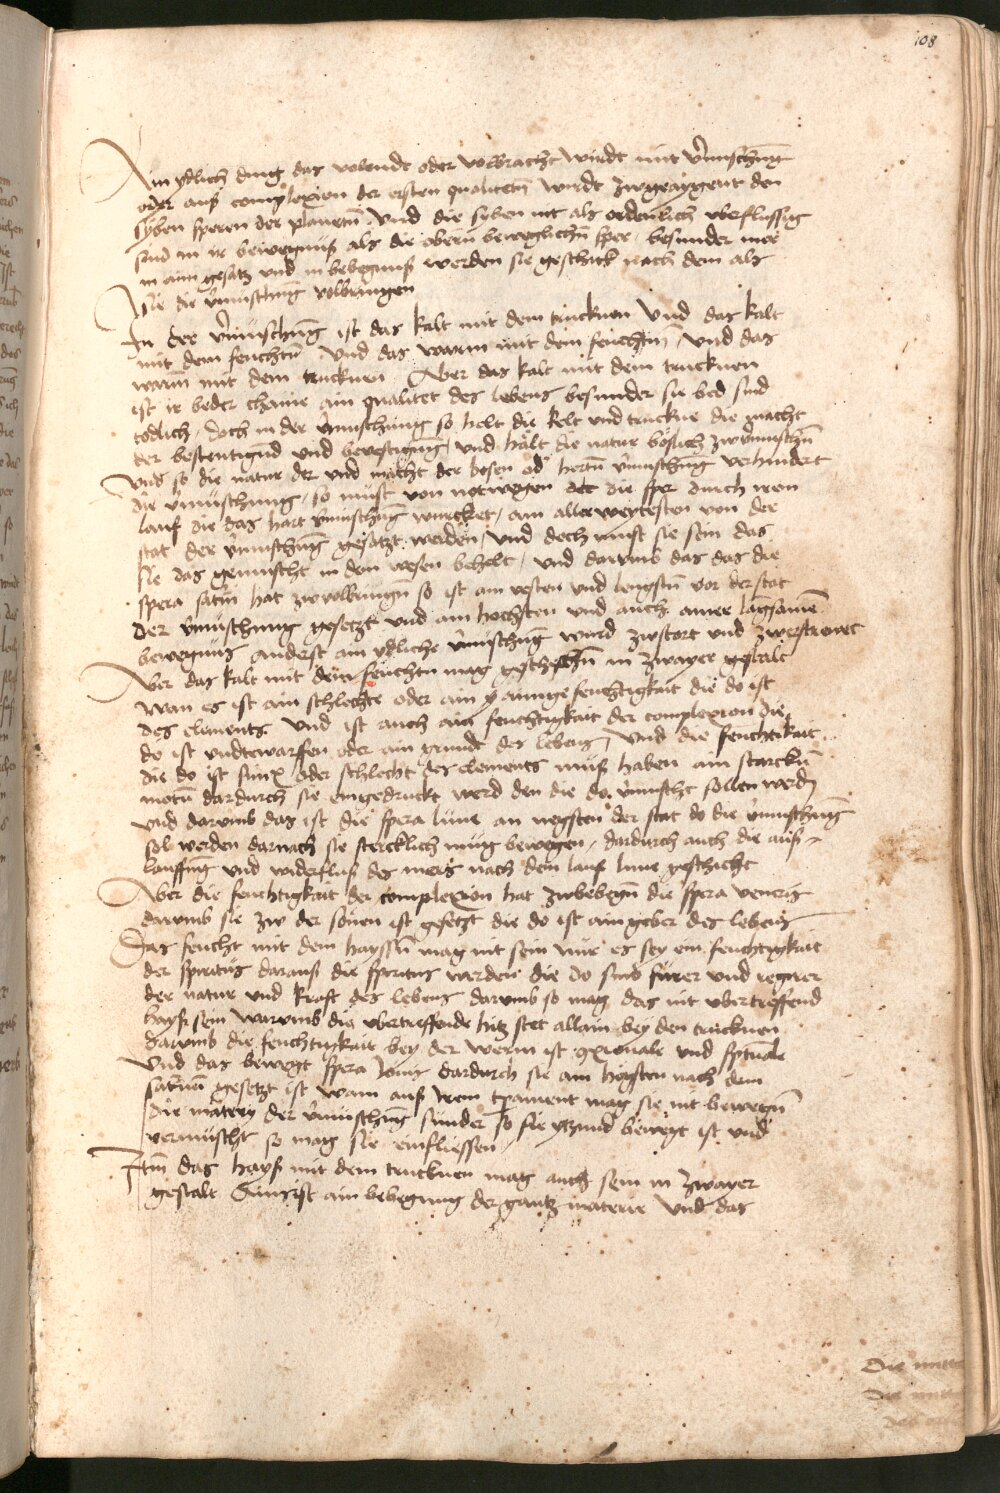 108
Ain ydlich ding das volendt oder volbracht wirdt mit v̈muschūg
oder auß complexion der ersten qualitetn̄ wirdt zwgeaygent den
syben speren der planetn̄ Vnd die syben nit als ordenlich vberflussig
sind in ir bewegnuß als die obern beweglichn̄ sper / besunder mer
in aim gesatz vnd in bebegnuß werden sie geschickt nach dem als
sie die v̈muschūg volbringen
In der v̈muschūg ist das kalt mit dem trucknen Vnd das kalt
mit dem feuchtn̄ Vnd das warm mit dem feuchtn̄ / vnd das
warm mit dem trucknen Aber das kalt mit dem trucknen
ist ir beder chaine ain qualitet des lebens besunder sy bed sind
todlich / doch in der v̈muschung so helt die kelt vnd truckne die macht
der bestentigund vnd bevestigung vnd halt die natur böslich zwv̈muschn̄
Vnd so die natur der vnd macht der bosen od̄ hertn̄ v̈muschūg verhindert
die v̈muschung / so must von notwegen die sper durch iren
lauf die das hart v̈muschūg wurcket / am aller weytesten von der
stat der v̈muschūg gesatzt werden / Vnd doch must sie sein das
sie das gemuscht in dem wesen behelt / vnd darumb das das die
spera satn̄i hat zwvolbringn̄ so ist am vesten vnd lengstn̄ vor der stat
der v̈muschung gesetzt vnd am hochsten vnd auch ainer lāgsamē
bewegnus anderst ain ydliche v̈muschūg wurd zwstort vnd zwerstrewet
Aber das kalt mit dem feuchtn mag geschehn̄ in zwayer gestalt
Wan es ist ain schlechte oder ain ainige feuchtigkait die do ist
des elements Vnd ist auch ain feuchtigkait der complexion die
do ist vndterwarffen oder ain grundt des lebens / Vnd die feuchtikait
die do ist simx oder schlecht des elements muß haben ain starckn̄
motū dardurch sie eingedruckt werd den die do v̈muscht sollen werdn̄
vnd darumb das ist die spera lune an negsten der stat do die v̈muschūg
sol werden darnach sie stercklich mug bewegen / dardurch auch die auß-
lauffūg vnd widerfluß des mers nach dem lauf lune geschicht
Aber die feuchtigkait der complexion hat zwbebegn̄ die spera veneris
darumb sie zw der sonen ist gesetzt die do ist ain geber des lebens
Das feucht mit dem hayssn̄ mag nit sein nur es sey ein feuchtigkait
der spiritus darauß die spiritus werden die do sind fürer vnd regirer
der natur vnd kraft des lebens darumb so mag das nit vbertreffend
hayß sein warumb die vbertreffende hitz stet allain bey den trucknen
darumb die feuchtigkait bey der werm ist vnd
Vnd das bewegt spera Jouis dardurch sie am hogsten nach dem
saturnen gesetzt ist wann auß irem mag sie nit bewegn̄
die matery der v̈muschūg sunder so sie ytzund bewegt ist vnd
vermuscht so mag sie einfliessen
Itm̄ das hayß mit dem trucknen mag auch sein in zwayer
gestalt Ains ist ain bebegung der gantz materie Vnd das
Die mitt
Die mitt